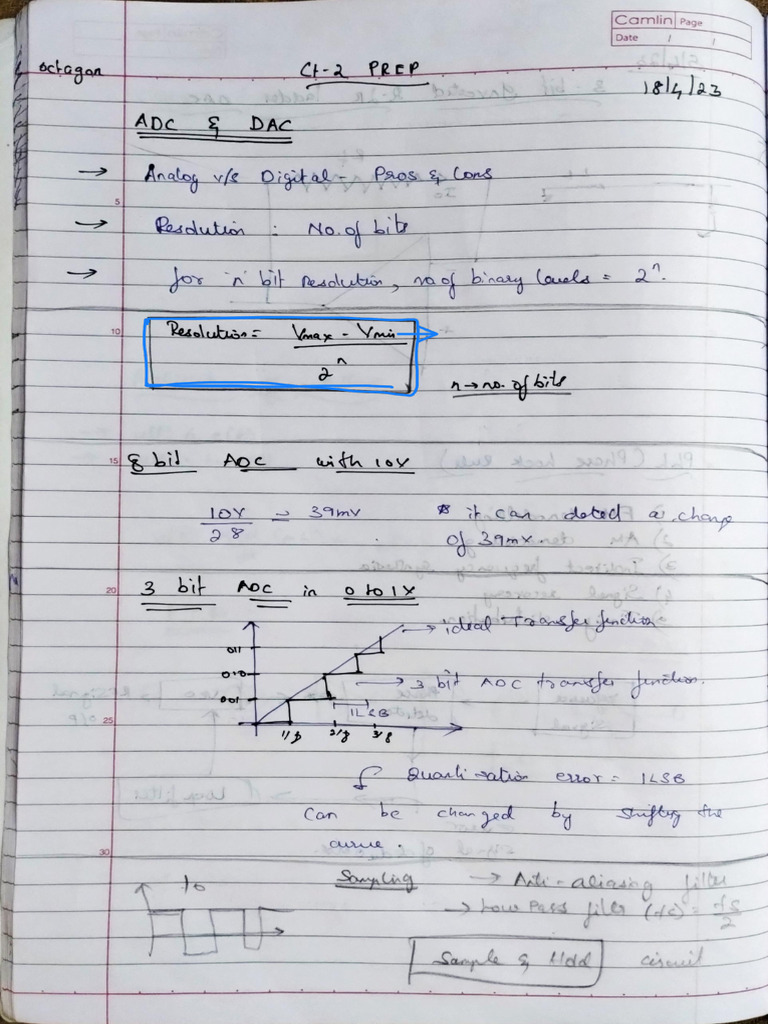 Camlin Page
Date / /
octagon Ct-2 PREP
18/4/23
ADC & DAC
→ Analog v/s Digital - Pros & Cons
5
→ Resolution : No. of bits
→ for 'n' bit resolution, no of binary levels = 2^n.
10
Resolution = Vmax - Vmin →
2^n
n → no. of bits
15
8 bit ADC with 10V
10V = 39mV it can detect a change
2^8 of 39mv.
20
3 bit ADC in 0 to 1V
→ ideal Transfer function
011
010 → 3 bit ADC transfer function.
001
1LSB
25
1/8 2/8 3/8
Quantization error = 1LSB
Can be changed by shifting the
curve.
30
Sampling → Anti-aliasing filter
→ Low Pass filter (fs) = fs/2
Sample & Hold circuit